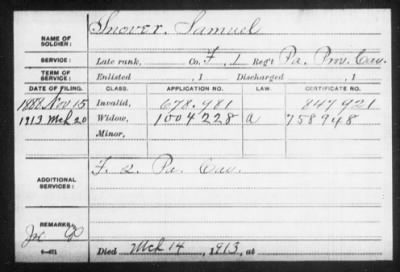 NAME OF SOLDIER: Snover, Samuel
SERVICE: Late rank, Co. F, 1 Reg't Pa. Prov. Cav.
TERM OF SERVICE: Enlisted , 1 Discharged , 1
DATE OF FILING. CLASS. APPLICATION NO. LAW. CERTIFICATE NO.
1888 Nov 15 Invalid, 678.981 847921
1913 Mch 20 Widow, 1004228 a 758948
Minor,
ADDITIONAL SERVICES: F. 2 Pa. Cav.
REMARKS:
Died Mch 14, 1913, at